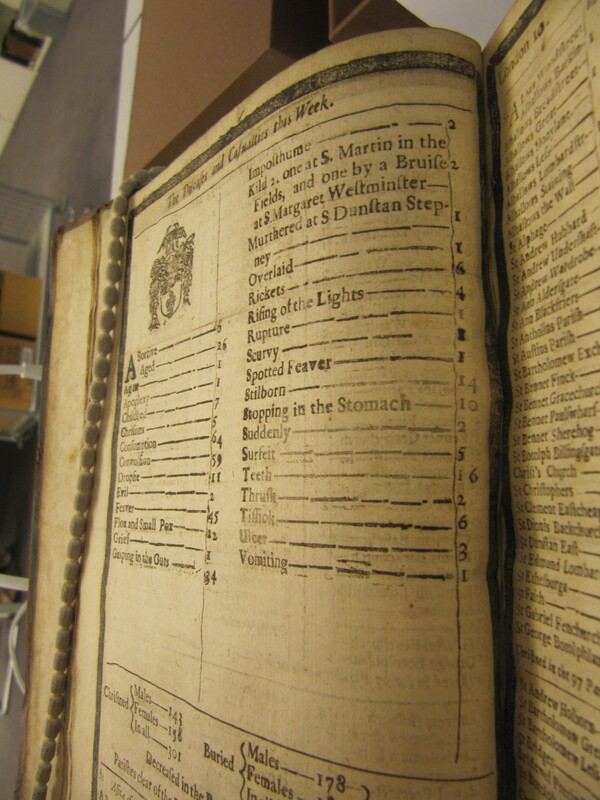 The Diseases and Casualties this Week.
Abortive 5
Aged 26
Ague 1
Apoplexy 1
Childbed 7
Chrisoms 5
Consumption 64
Convulsion 59
Dropsie 11
Evil 2
Feaver 45
Flox and Small Pox
Grief 1
Griping in the Guts 34
Imposthume 2
Kild 2. one at S. Martin in the
Fields, and one by a Bruise 2
at S. Margaret Westminster
Murthered at S Dunstan Step-
ney 1
Overlaid 1
Rickets 6
Rising of the Lights 4
Rupture 1
Scurvy
Spotted Feaver
Stilborn 14
Stopping in the Stomach 10
Suddenly 2
Surfeit 5
Teeth 16
Thrush 2
Tissick 6
Ulcer 3
Vomiting 1
Christned
Males 143
Females 158
In all 301
Buried
Males 178
Females
In all
Decreased in the
Parishes clear of the
London 10.
St Alphage
St Andrew Hubbard
St Andrew Undershaft
St Andrew Wardrobe
St Ann Aldersgate
St Ann Blackfriers
St Antholins Parish
St Austins Parish
St Bartholomew Exch
St Bennet Finck
St Bennet Gracechurch
St Bennet Paulswharf
St Bennet Sherehog
St Botolph Billingsgate
Christ's Church
St Christophers
St Clement Eastcheap
St Dionis Backchurch
St Dunstan East
St Edmund Lombar
St Ethelburga
St Faith
St Gabriel Fenchurch
St George Botolphlan
Christned in the 97 Par
St Andrew Holborn
St Bartholomew Grea
St Bartholomew Less
St Bridget